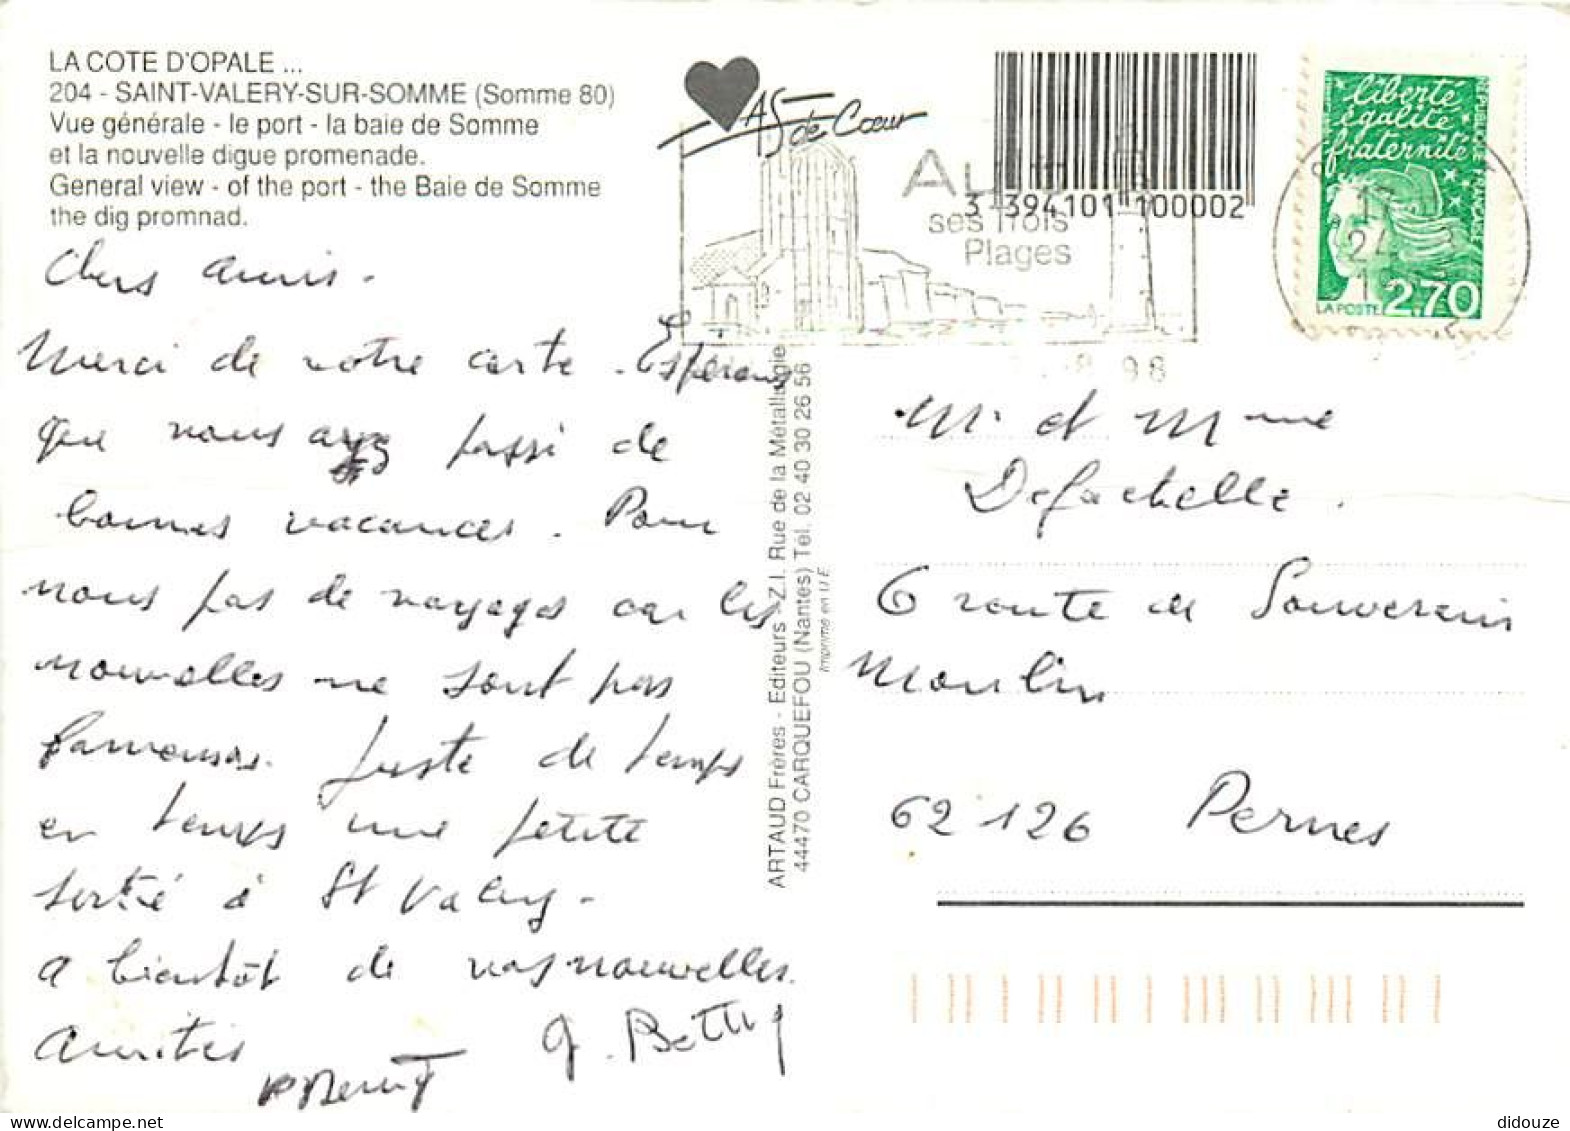 LA COTE D'OPALE ...
204 - SAINT-VALERY-SUR-SOMME (Somme 80)
Vue générale - le port - la baie de Somme
et la nouvelle digue promenade.
General view - of the port - the Baie de Somme
the dig promnad.
AS de Cœur
ses trois
Plages
3 394101 100002
liberté
égalité
fraternité
RÉPUBLIQUE FRANÇAISE
LA POSTE 2,70
98
Chers amis.
Merci de votre carte. Espérons
que vous ayez passé de
bonnes vacances. Pour
nous pas de voyages car les
nouvelles ne sont pas
fameuses. Juste de temps
en temps une petite
sortie à St Valery.
A bientôt de vos nouvelles.
Amitiés
G. Betty
ARTAUD Frères - Editeurs - Z.I. Rue de la Métallurgie
44470 CARQUEFOU (Nantes) Tél. 02 40 30 26 56
Imprimé en U.E.
Mr et Mme
Defachelle.
6 route de Souverain
Moulin
62126 Pernes
didouze